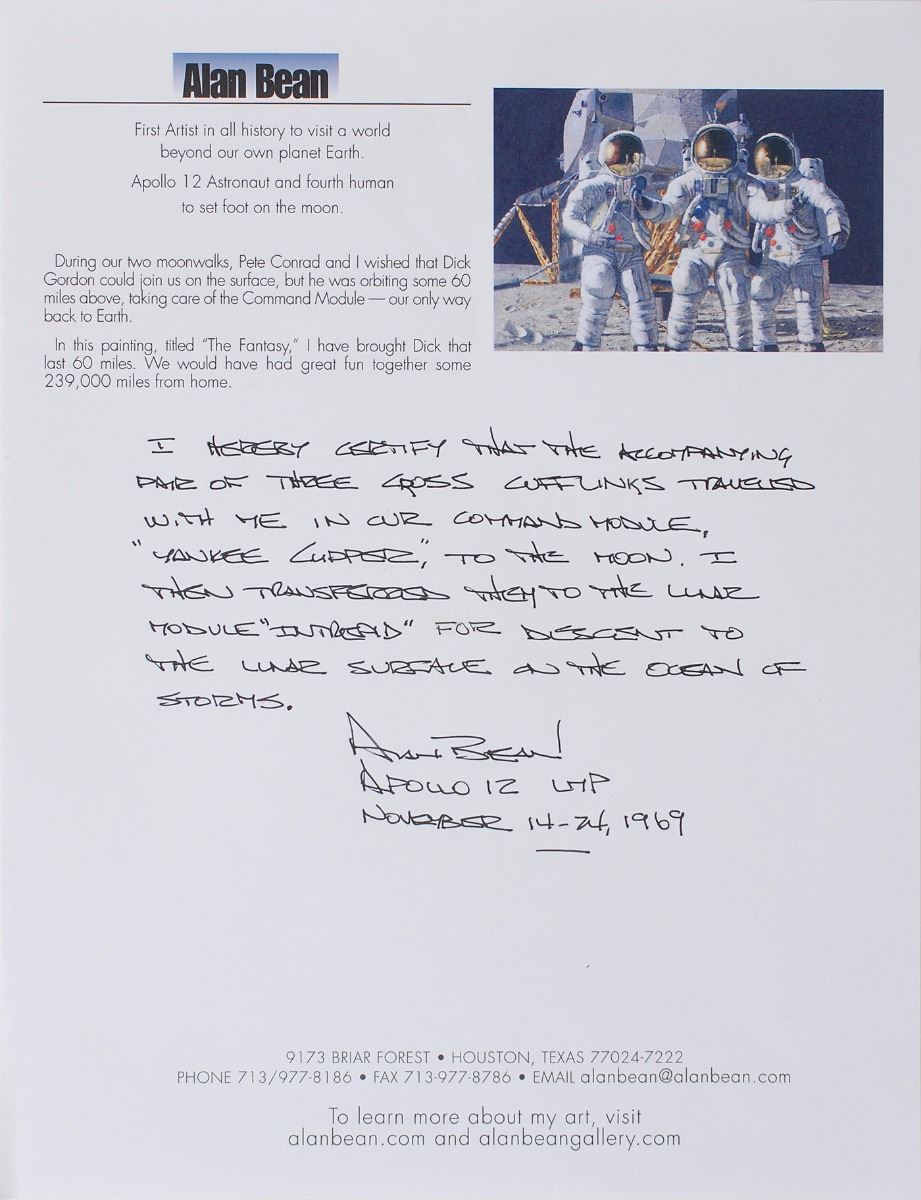 Alan Bean
First Artist in all history to visit a world
beyond our own planet Earth.
Apollo 12 Astronaut and fourth human
to set foot on the moon.
During our two moonwalks, Pete Conrad and I wished that Dick
Gordon could join us on the surface, but he was orbiting some 60
miles above, taking care of the Command Module — our only way
back to Earth.
In this painting, titled "The Fantasy," I have brought Dick that
last 60 miles. We would have had great fun together some
239,000 miles from home.
I HEREBY CERTIFY THAT THE ACCOMPANYING
PAIR OF THREE CROSS CUFFLINKS TRAVELED
WITH ME IN OUR COMMAND MODULE,
"YANKEE CLIPPER", TO THE MOON. I
THEN TRANSFERRED THEY TO THE LUNAR
MODULE "INTREPID" FOR DESCENT TO
THE LUNAR SURFACE ON THE OCEAN OF
STORMS.
ALAN BEAN
APOLLO 12 LMP
NOVEMBER 14-24, 1969
9173 BRIAR FOREST • HOUSTON, TEXAS 77024-7222
PHONE 713/977-8186 • FAX 713-977-8786 • EMAIL alanbean@alanbean.com
To learn more about my art, visit
alanbean.com and alanbeangallery.com